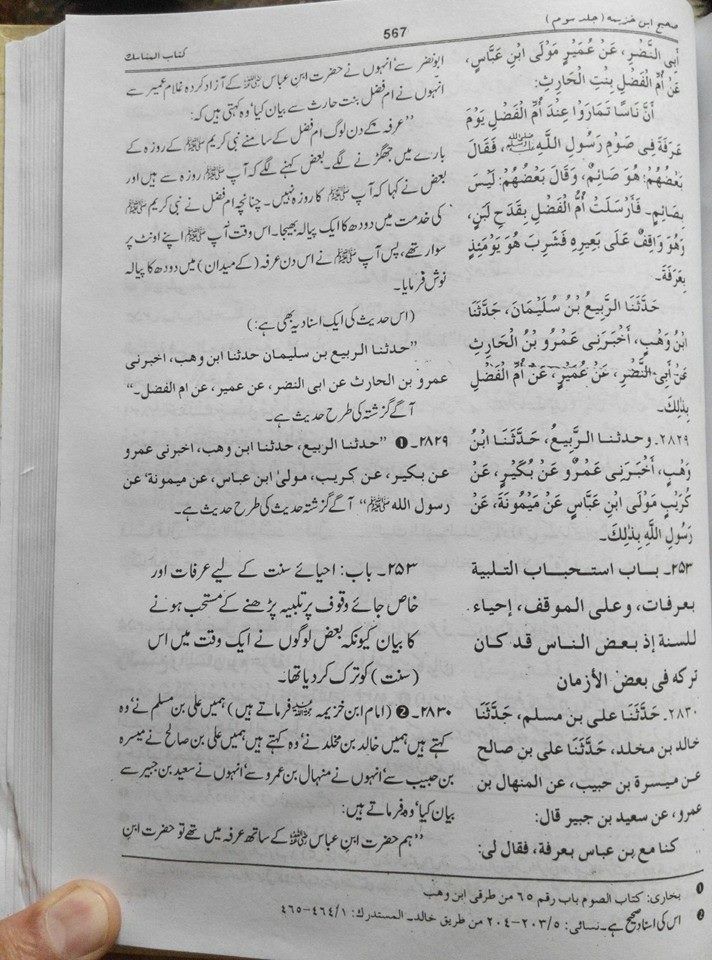 صحیح ابن خزیمہ (جلد سوم)
567
کتاب المناسک
أَبِي النَّضْرِ، عَنْ عُمَيْرٍ مَوْلَى ابْنِ عَبَّاسٍ،
عَنْ أُمِّ الْفَضْلِ بِنْتِ الْحَارِثِ:
أَنَّ نَاسًا تَمَارَوْا عِنْدَ أُمِّ الْفَضْلِ يَوْمَ
عَرَفَةَ فِي صَوْمِ رَسُولِ اللَّهِ ﷺ، فَقَالَ
بَعْضُهُمْ: هُوَ صَائِمٌ، وَقَالَ بَعْضُهُمْ: لَيْسَ
بِصَائِمٍ۔ فَأَرْسَلَتْ أُمُّ الْفَضْلِ بِقَدَحِ لَبَنٍ،
وَهُوَ وَاقِفٌ عَلَى بَعِيرِهِ فَشَرِبَ هُوَ يَوْمَئِذٍ
بِعَرَفَةَ۔
حَدَّثَنَا الرَّبِيعُ بْنُ سُلَيْمَانَ، حَدَّثَنَا
ابْنُ وَهْبٍ، أَخْبَرَنِي عَمْرُو بْنُ الْحَارِثِ
عَنْ أَبِي النَّضْرِ، عَنْ عُمَيْرٍ، عَنْ أُمِّ الْفَضْلِ
بِذٰلِكَ۔
٢٨٢٩۔ وحدثنا الرَّبِيعُ، حَدَّثَنَا ابْنُ
وَهْبٍ، أَخْبَرَنِي عَمْرٌو عَنْ بُكَيْرٍ، عَنْ
كُرَيْبٍ مَوْلَى ابْنِ عَبَّاسٍ عَنْ مَيْمُونَةَ، عَنْ
رَسُولِ اللَّهِ بِذٰلِكَ۔
٢٥٣۔ بـاب استحباب التلبية
بعرفات، وعلى الموقف، إحياء
للسنة إذ بعض الناس قد كان
تركه فى بعض الأزمان
٢٨٣٠۔ حَدَّثَنَا على بن مسلم، حَدَّثَنَا
خالد بن مخلد، حَدَّثَنَا على بن صالح
عن ميسرة بن حبيب، عن المنهال بن
عمرو، عن سعيد بن جبير قال:
كنا مع بن عباس بعرفة، فقال لى:
ابونضر سے انہوں نے حضرت ابن عباس ﷜ کے آزاد کردہ غلام عمیر سے
انہوں نے ام فضل بنت حارث سے بیان کیا‘ وہ کہتی ہیں کہ:
’’عرفہ کے دن لوگ ام فضل کے سامنے نبی کریم ﷺ کے روزہ کے
بارے میں جھگڑنے لگے۔ بعض کہنے لگے کہ آپ ﷺ روزہ سے ہیں اور
بعض نے کہا کہ آپ ﷺ کا روزہ نہیں۔ چنانچہ ام فضل نے نبی کریم ﷺ
کی خدمت میں دودھ کا ایک پیالہ بھیجا۔ اس وقت آپ ﷺ اپنے اونٹ پر
سوار تھے، پس آپ ﷺ نے اس دن عرفہ (کے میدان) میں دودھ کا پیالہ
نوش فرمایا۔
(اس حدیث کی ایک اسناد یہ بھی ہے:)
’’حدثنا الربيع بن سليمان حدثنا ابن وهب، اخبرنى
عمرو بن الحارث عن ابى النضر، عن عمير، عن ام الفضل۔‘‘
آگے گزشتہ کی طرح حدیث ہے۔
٢٨٢٩۔ ❶ ’’حدثنا الربيع، حدثنا ابن وهب، اخبرنى عمرو
عن بكير، عن كريب، مولىٰ ابن عباس، عن ميمونة‘ عن
رسول الله ﷺ‘‘ آگے گزشتہ حدیث کی طرح حدیث ہے۔
٢٥٣۔ باب: احیائے سنت کے لیے عرفات اور
خاص جائے وقوف پر تلبیہ پڑھنے کے مستحب ہونے
کا بیان کیونکہ بعض لوگوں نے ایک وقت میں اس
(سنت) کو ترک کر دیا تھا۔
٢٨٣٠۔ ❷ (امام ابن خزیمہ ﷫ فرماتے ہیں) ہمیں علی بن مسلم نے‘ وہ
کہتے ہیں ہمیں خالد بن مخلد نے‘ وہ کہتے ہیں ہمیں علی بن صالح نے میسرہ
بن حبیب سے‘ انہوں نے منہال بن عمرو سے‘ انہوں نے سعید بن جبیر سے
بیان کیا‘ وہ فرماتے ہیں:
’’ہم حضرت ابن عباس ﷜ کے ساتھ عرفہ میں تھے تو حضرت ابن
❶ بخاری: کتاب الصوم باب رقم ٦٥ من طرقى ابن وهب
❷ اس کی اسناد صحیح ہے۔ نسائی: ٢٠٣/٥-٢٠٤ من طريق خالد۔ المستدرك: ٤٦٤/١-٤٦٥